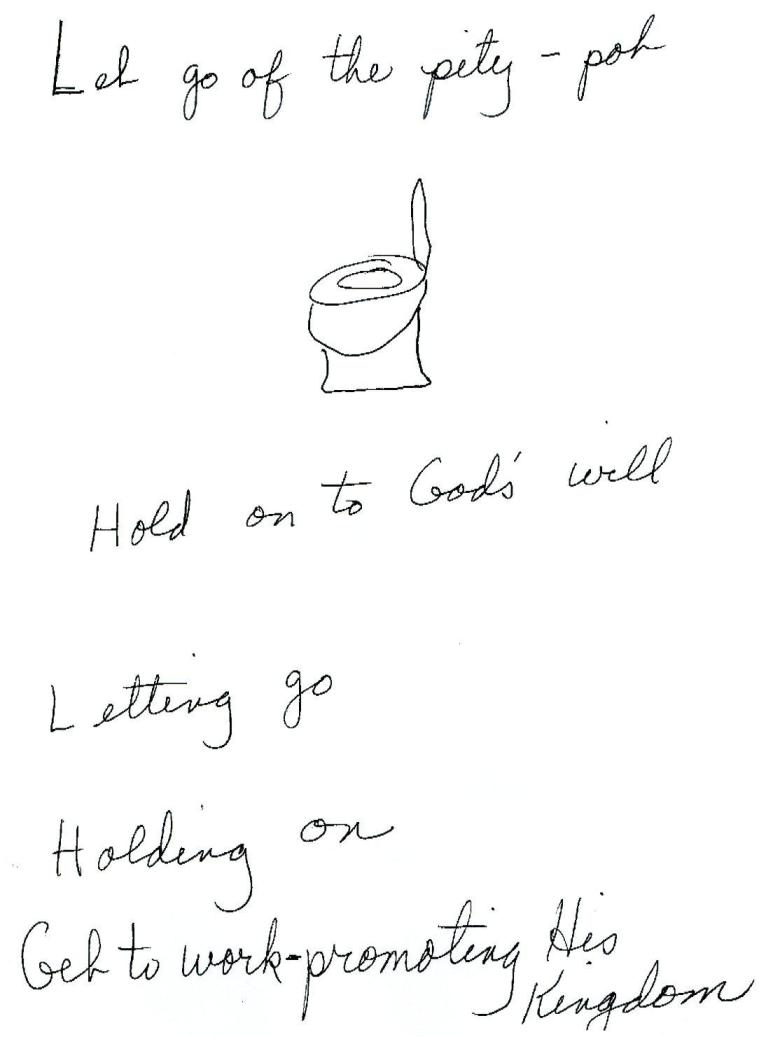 Let go of the pity-pot
Hold on to God's will
Letting go
Holding on
Get to work-promoting His
Kingdom